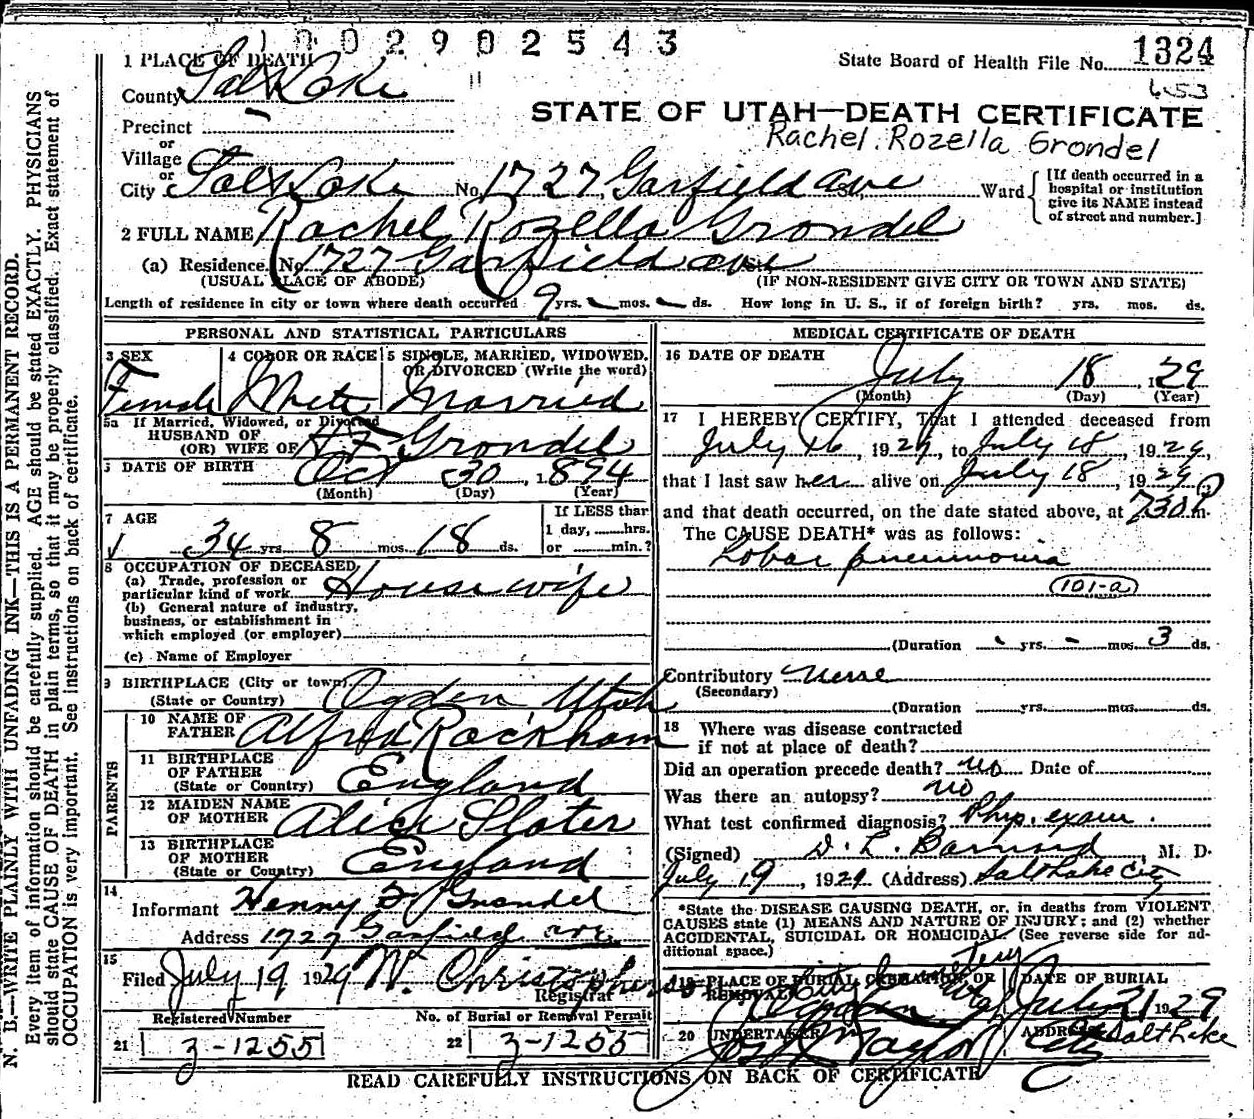 1 0 0 2 9 0 2 5 4 3
1 PLACE OF DEATH
State Board of Health File No. 1324
County Salt Lake
653
STATE OF UTAH—DEATH CERTIFICATE
Precinct
Rachel Rozella Grondel
or
Village
or
City Salt Lake No. 1727 Garfield Ave St., Ward
[If death occurred in a hospital or institution give its NAME instead of street and number.]
2 FULL NAME Rachel Rozella Grondel
(a) Residence. No. 1727 Garfield ave St.
(USUAL PLACE OF ABODE) (IF NON-RESIDENT GIVE CITY OR TOWN AND STATE)
Length of residence in city or town where death occurred 9 yrs. - mos. - ds. How long in U. S., if of foreign birth? yrs. mos. ds.
PERSONAL AND STATISTICAL PARTICULARS
3 SEX 4 COLOR OR RACE 5 SINGLE, MARRIED, WIDOWED, OR DIVORCED (Write the word)
Female White Married
5a If Married, Widowed, or Divorced
HUSBAND OF
(OR) WIFE OF H F Grondel
6 DATE OF BIRTH Oct 30, 1894
(Month) (Day) (Year)
7 AGE 34 yrs. 8 mos. 18 ds.
If LESS than 1 day, ......hrs. or ......min.?
8 OCCUPATION OF DECEASED
(a) Trade, profession or particular kind of work Housewife
(b) General nature of industry, business, or establishment in which employed (or employer)
(c) Name of Employer
9 BIRTHPLACE (City or town) Ogden Utah
(State or Country)
PARENTS
10 NAME OF FATHER Alfred Rackham
11 BIRTHPLACE OF FATHER England
(State or Country)
12 MAIDEN NAME OF MOTHER Alice Slater
13 BIRTHPLACE OF MOTHER England
(State or Country)
14
Informant Henry F Grondel
Address 1727 Garfield ave.
15
Filed July 19 1929 W. Christopherson
Registrar
Registered Number No. of Burial or Removal Permit
21 3-1255 22 3-1255
MEDICAL CERTIFICATE OF DEATH
16 DATE OF DEATH
July 18, 1929
(Month) (Day) (Year)
17 I HEREBY CERTIFY, That I attended deceased from
July 16, 1929, to July 18, 1929,
that I last saw her alive on July 18, 1929,
and that death occurred, on the date stated above, at 730 P m.
The CAUSE DEATH* was as follows:
Lobar pneumonia
101-a
(Duration - yrs. - mos. 3 ds.
Contributory
(Secondary)
(Duration yrs. mos. ds.
18 Where was disease contracted
if not at place of death?
Did an operation precede death? no Date of
Was there an autopsy? no
What test confirmed diagnosis? Phys. exam.
(Signed) D. L. Barnard, M. D.
July 19, 1929 (Address) Salt Lake City
*State the DISEASE CAUSING DEATH, or, in deaths from VIOLENT
CAUSES state (1) MEANS AND NATURE OF INJURY; and (2) whether
ACCIDENTAL, SUICIDAL OR HOMICIDAL. (See reverse side for additional space.)
19 PLACE OF BURIAL, CREMATION, OR REMOVAL DATE OF BURIAL
July 21 1929
20 UNDERTAKER ADDRESS
Taylor Salt Lake City
READ CAREFULLY INSTRUCTIONS ON BACK OF CERTIFICATE
N. B.—WRITE PLAINLY WITH UNFADING INK—THIS IS A PERMANENT RECORD.
Every item of information should be carefully supplied. AGE should be stated EXACTLY. PHYSICIANS
should state CAUSE OF DEATH in plain terms, so that it may be properly classified. Exact statement of
OCCUPATION is very important. See instructions on back of certificate.